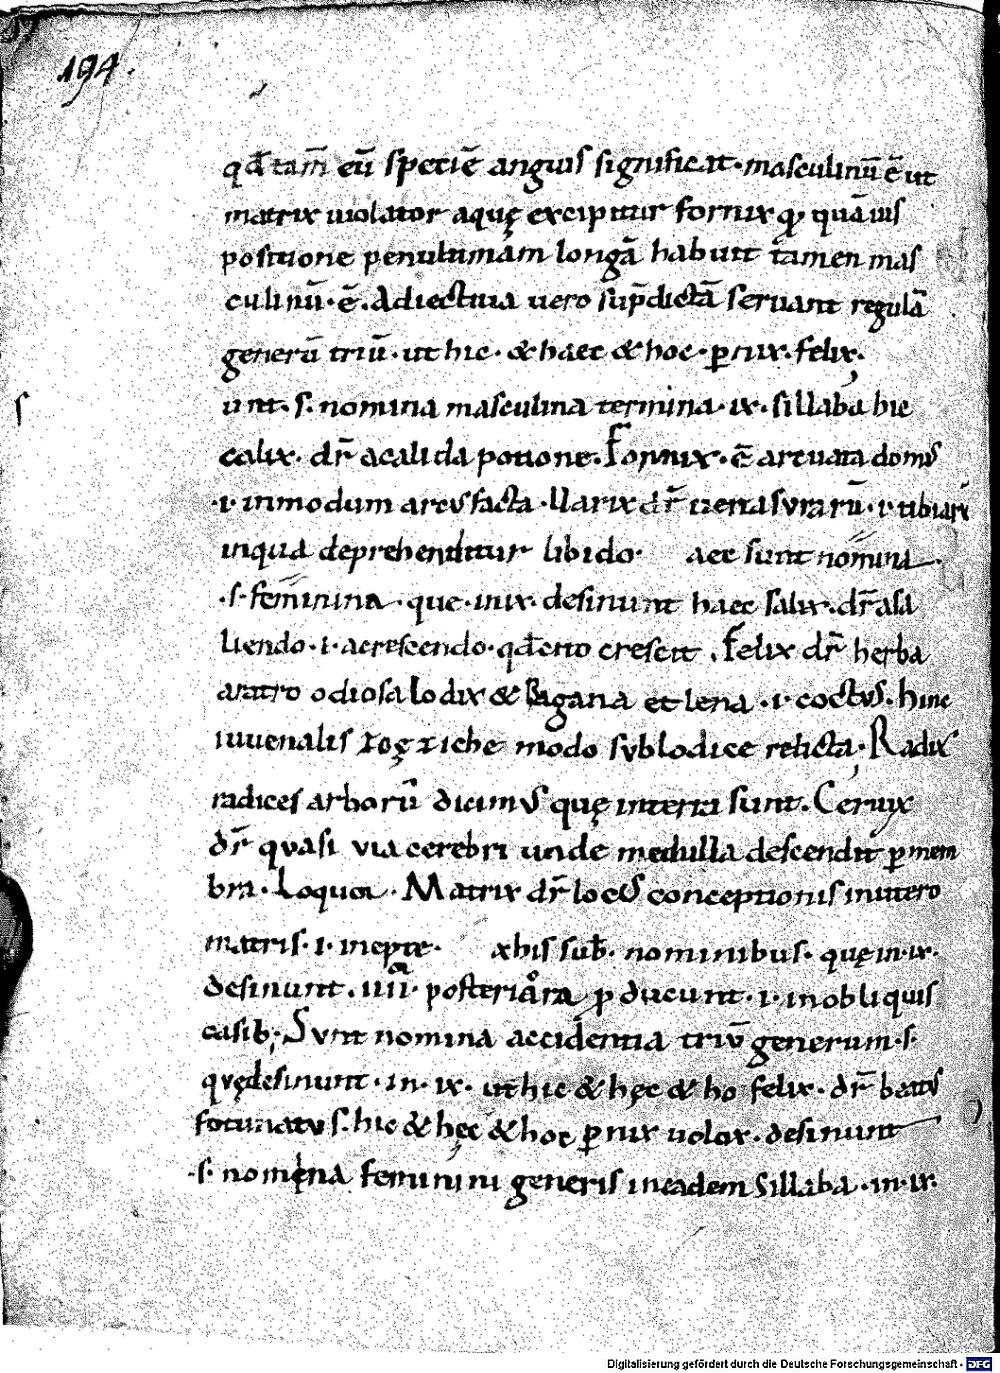 194.
qđ tam̄ eū speciē anguis significat · masculinū ē ut
matrix uiolator aquę excipitur fornix q quāuis
positione penultimam longā habuit tamen mas
culinū · ē. Adiectiua uero sup̄dictā seruant regulā
generū triū · ut hic · & haec & hoc · pnix · felix.
unt · s · nomina masculina termina · ix · sillaba hic
calix · dr̄ a calida potione. Fornix · ē arcuata domus
· i · in modum arcus facta · Uarix dr̄ uena surarū · i · tibiarū
in qua deprehenditur libido · aec sunt nomina
· s · feminina · que · in ix · desinunt haec salix · dr̄ a sa
liendo · i · a crescendo · qđ cito crescit . Felix dr̄ herba
aratro odiosa lodix & sagana et lena · i · coctus. hinc
iuuenalis modo sub lodice relicta · Radix
radices arborū dicimus quę in terra sunt. Ceruix
dr̄ quasi via cerebri unde medulla descendit p mem
bra · Matrix dr̄ locus conceptionis in utero
matris · i · his sub · nominibus · quę in · ix ·
desinunt · iiii · posteriora p ducunt · i · in obliquis
casib; Sunt nomina accidentia triū generum · s ·
quę desinunt · in · ix · ut hic & hęc & ho felix · dr̄ beatus
fortunatus · hic & hęc & hoc pnix uelox · desinunt
· s · nomina feminini generis in eadem sillaba · in · ix ·
Digitalisierung gefördert durch die Deutsche Forschungsgemeinschaft - DFG